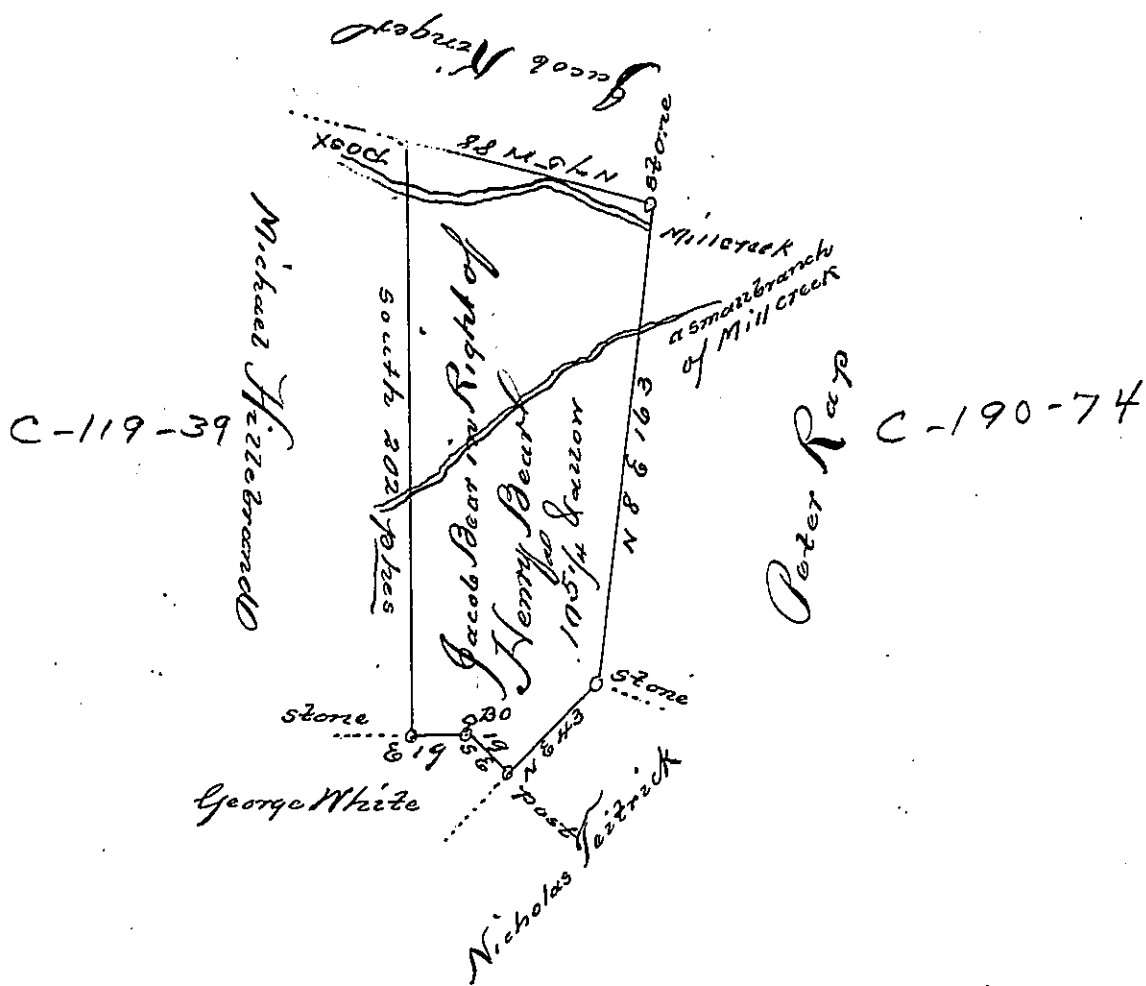 Jacob Ringer
post
N 75 W 88
stone
Mill creek
a small branch
of Mill Creek
Michael Hillebrand
C-119-39
South 202 phes
Jacob Bear in Right of
Henry Bear
105 1/4 &
N 8 E 163
Peter Rap
C-190-74
stone
E 19
DBO
S E 19
stone
N E 43
post
George White
Nicholas Teitrick